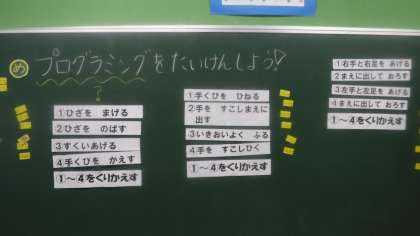 め プログラミングをたいけんしよう!
?
1 ひざを まげる
2 ひざを のばす
3 すくいあげる
4 手くびを かえす
①~④をくりかえす
1 手くびを ひねる
2 手を すこしまえに
出す
3 いきおいよく ふる
4 手を すこしひく
①~④をくりかえす
1 右手と右足を あげる
2 まえに出して おろす
3 左手と左足を あげる
4 まえに出して おろす
①~④をくりかえす